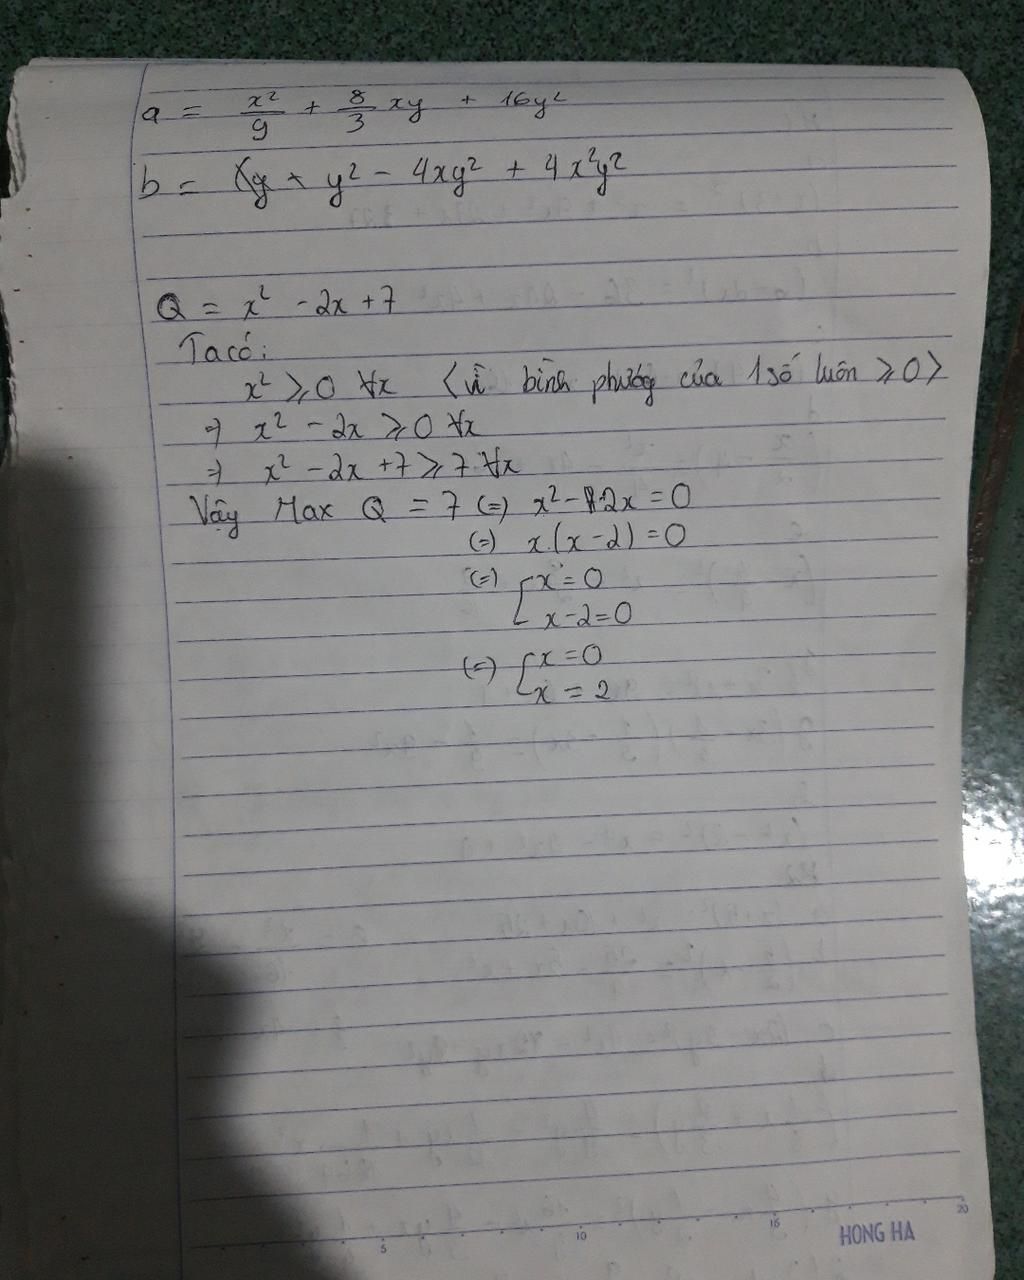 a = x²/9 + 8/3 xy + 16y²
b = xy + y² - 4xy² + 4x²y²
Q = x² - 2x + 7
Ta có:
x² ≥ 0 ∀x (vì bình phương của 1 số luôn ≥ 0)
=> x² - 2x ≥ 0 ∀x
=> x² - 2x + 7 ≥ 7 ∀x
Vậy Max Q = 7 (=) x² - 2x = 0
(=) x.(x - 2) = 0
(=) [ x = 0
x - 2 = 0
(=) [ x = 0
x = 2
5 10 15 20
HONG HA